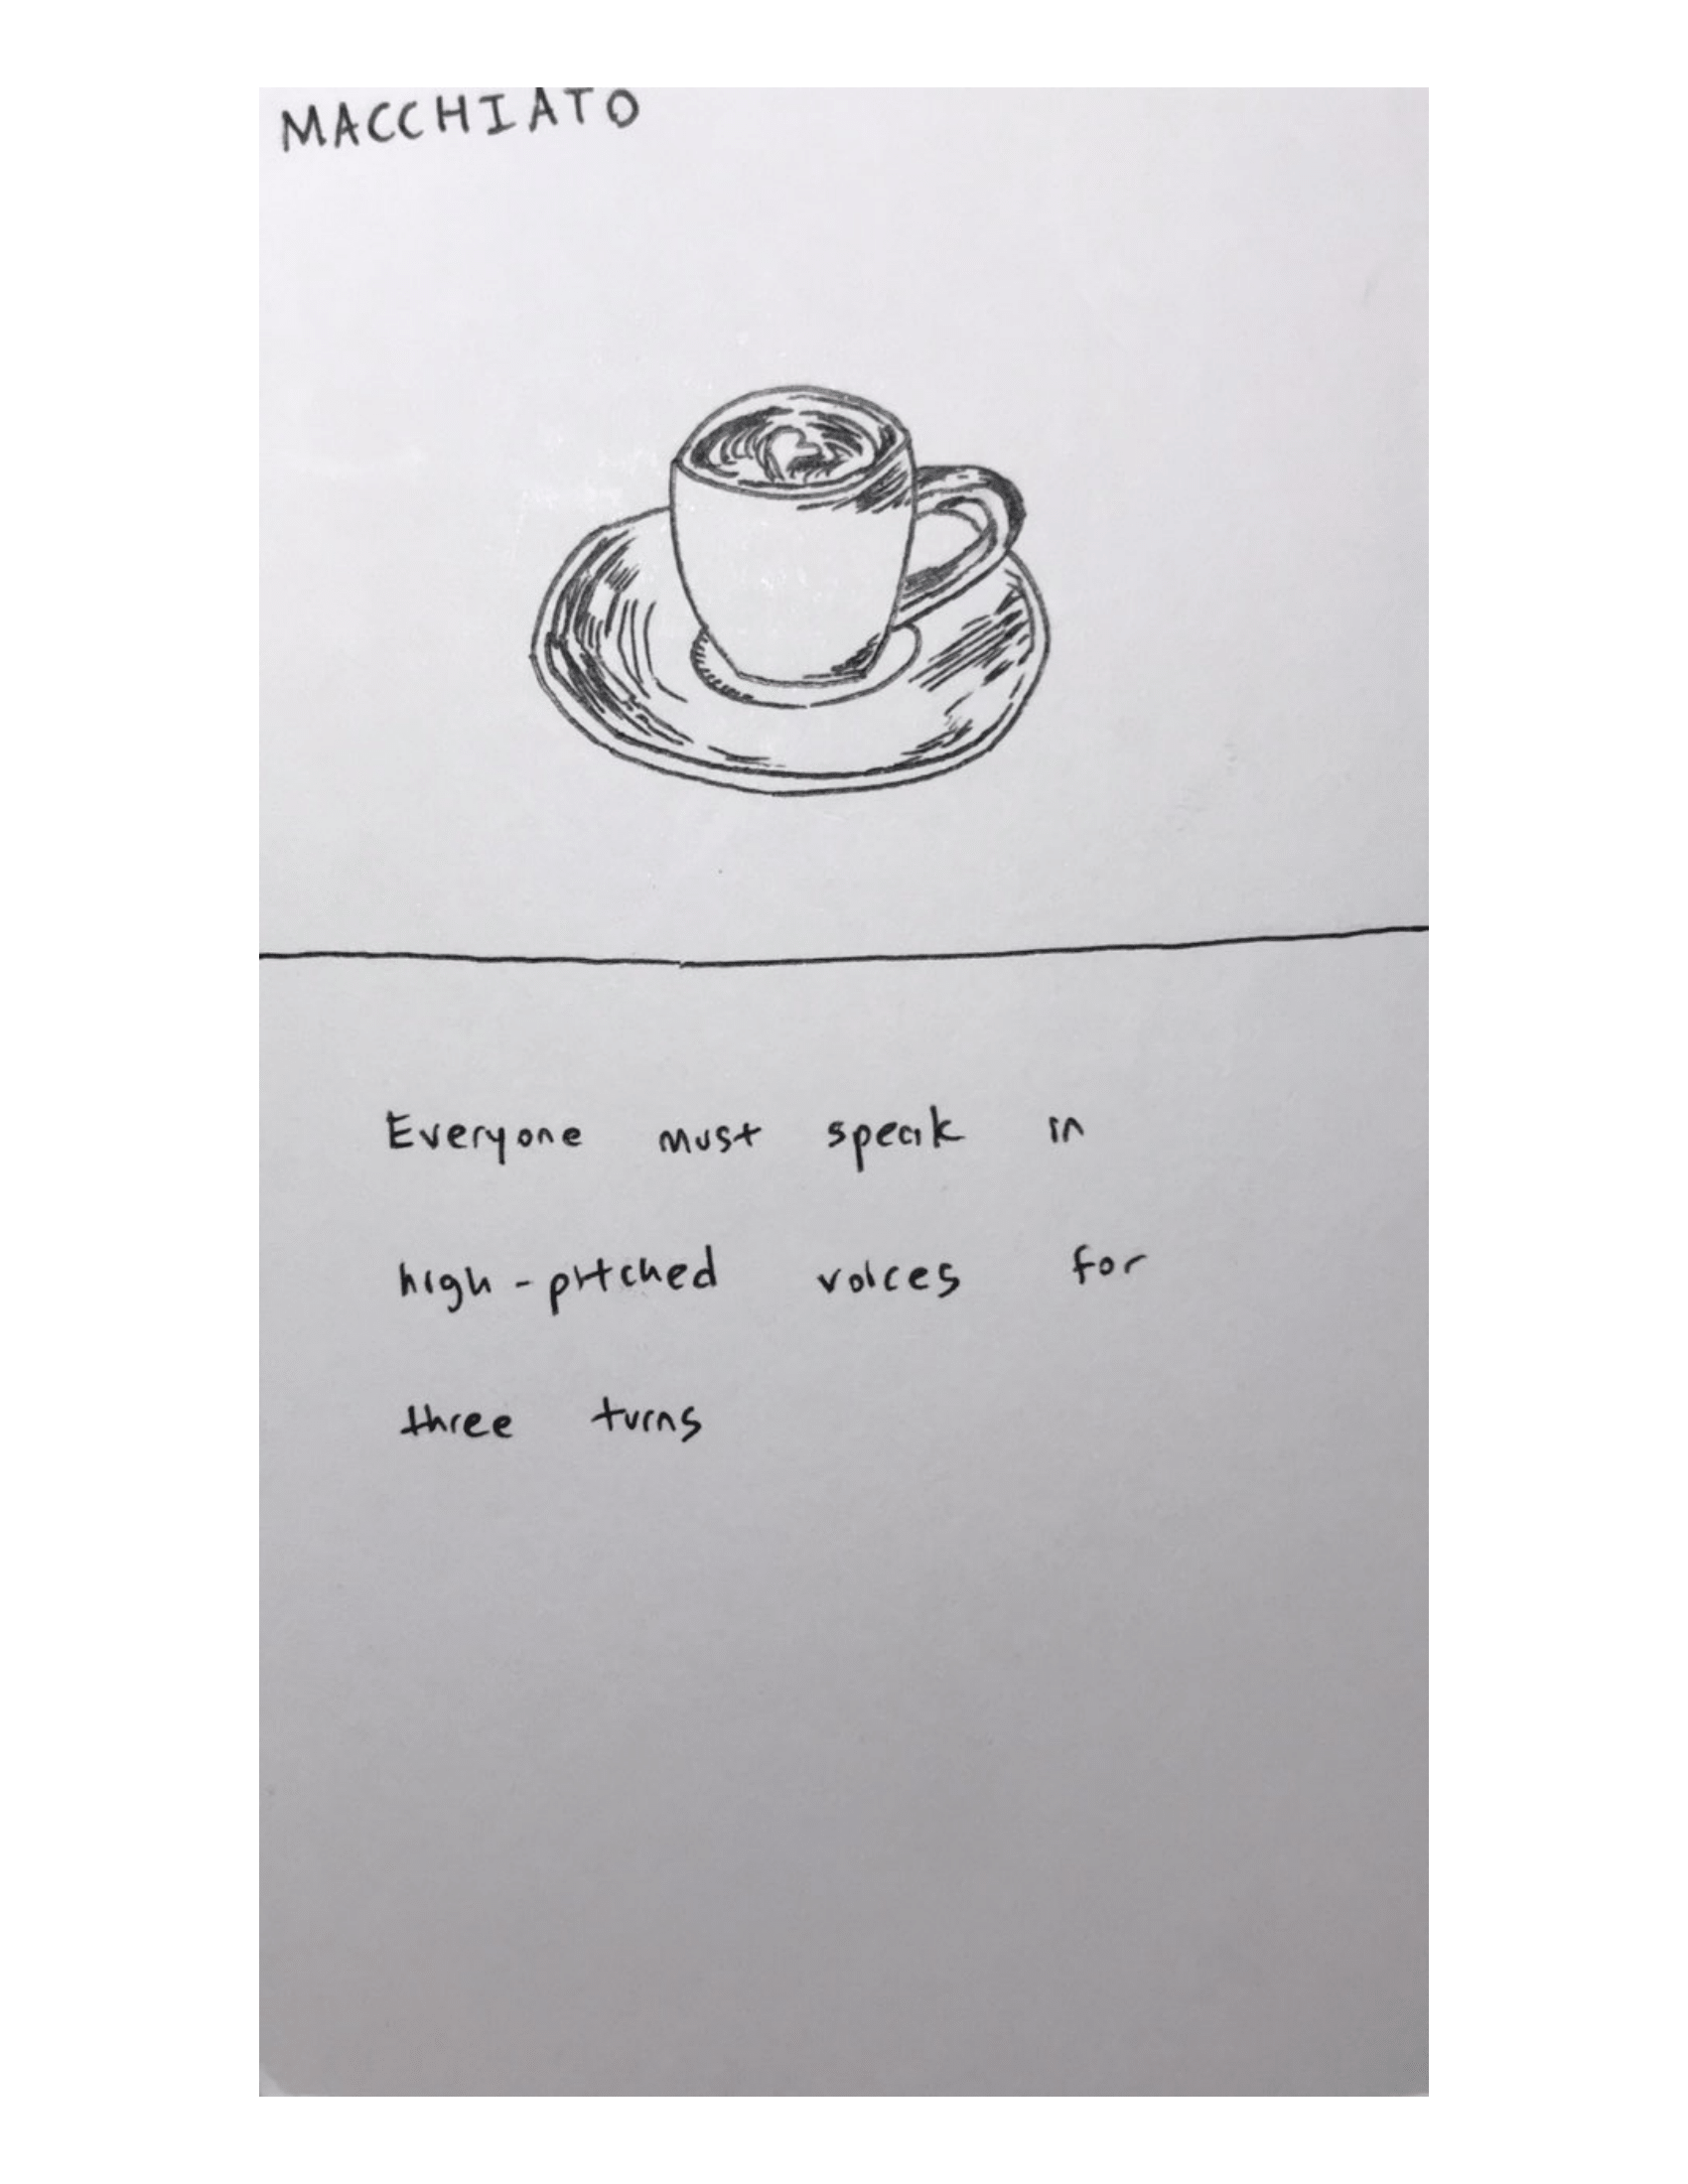 MACCHIATO
Everyone must speak in
high-pitched voices for
three turns